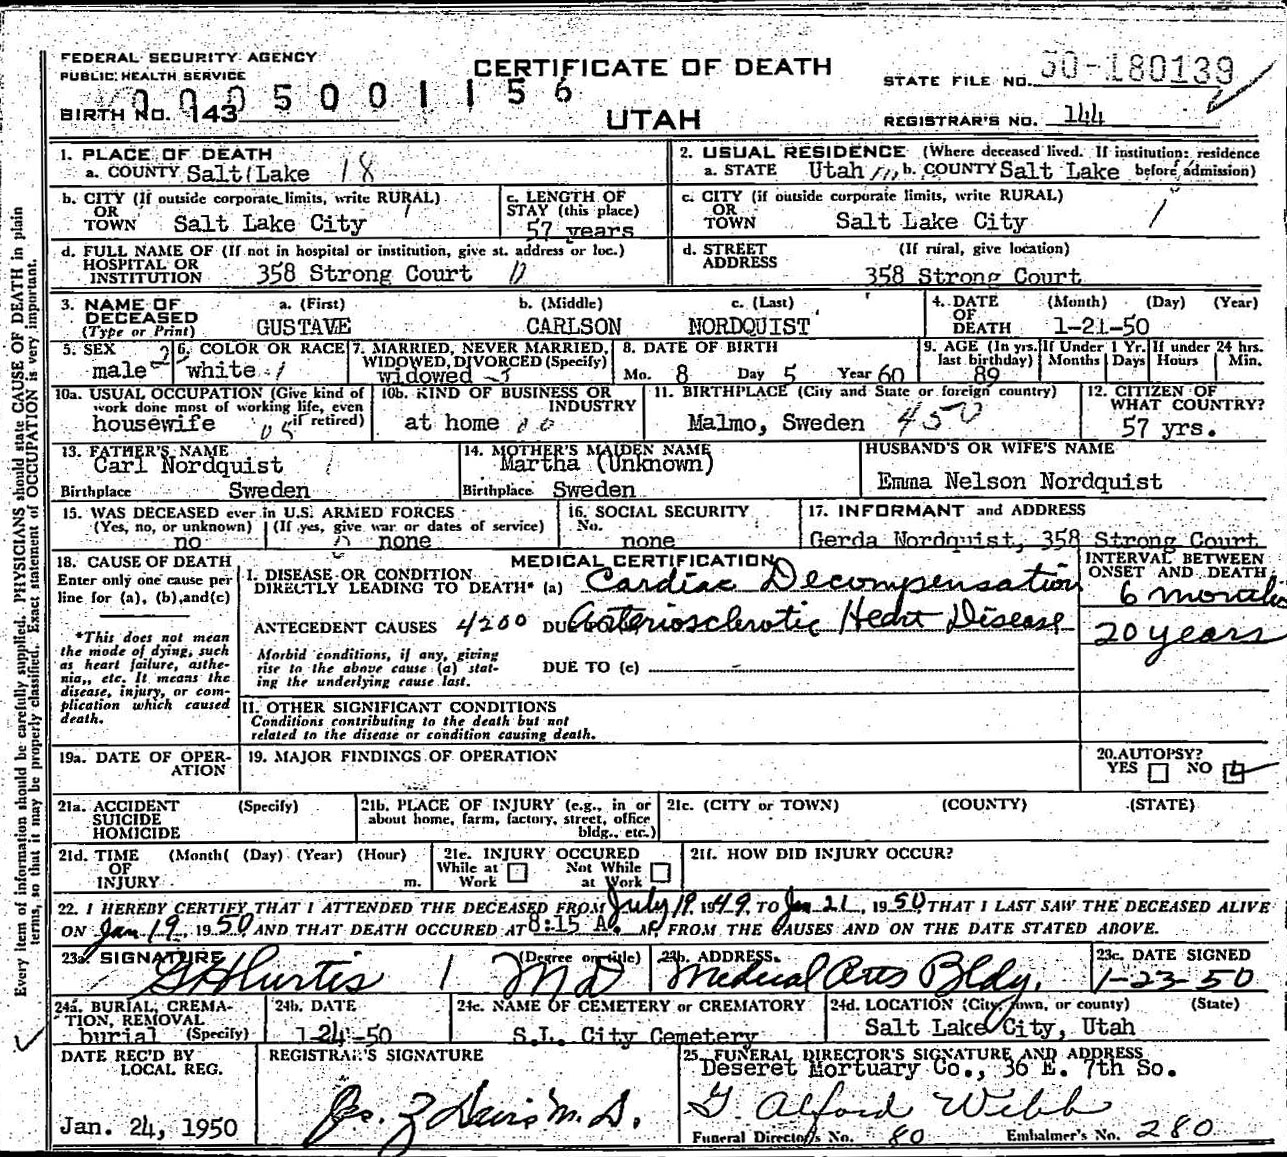 FEDERAL SECURITY AGENCY
PUBLIC HEALTH SERVICE
CERTIFICATE OF DEATH
STATE FILE NO. 50-180139
0005001156
BIRTH NO. 143
UTAH
REGISTRAR'S NO. 144
1. PLACE OF DEATH
a. COUNTY Salt Lake 18
2. USUAL RESIDENCE (Where deceased lived. If institution: residence before admission)
a. STATE Utah b. COUNTY Salt Lake
b. CITY (If outside corporate limits, write RURAL)
OR
TOWN Salt Lake City
c. LENGTH OF
STAY (this place)
57 years
c. CITY (if outside corporate limits, write RURAL)
OR
TOWN Salt Lake City
d. FULL NAME OF (If not in hospital or institution, give st. address or loc.)
HOSPITAL OR
INSTITUTION 358 Strong Court
d. STREET (If rural, give location)
ADDRESS
358 Strong Court
3. NAME OF
DECEASED
(Type or Print)
a. (First) b. (Middle) c. (Last)
GUSTAVE CARLSON NORDQUIST
4. DATE (Month) (Day) (Year)
OF
DEATH 1-21-50
5. SEX
male 2
6. COLOR OR RACE
white 1
7. MARRIED, NEVER MARRIED,
WIDOWED, DIVORCED (Specify)
widowed
8. DATE OF BIRTH
Mo. 8 Day 5 Year 60
9. AGE (In yrs. last birthday)
89
If Under 1 Yr.
Months Days
If under 24 hrs.
Hours Min.
10a. USUAL OCCUPATION (Give kind of
work done most of working life, even
if retired)
housewife
10b. KIND OF BUSINESS OR
INDUSTRY
at home
11. BIRTHPLACE (City and State or foreign country)
Malmo, Sweden 450
12. CITIZEN OF
WHAT COUNTRY?
57 yrs.
13. FATHER'S NAME
Carl Nordquist
Birthplace Sweden
14. MOTHER'S MAIDEN NAME
Martha (Unknown)
Birthplace Sweden
HUSBAND'S OR WIFE'S NAME
Emma Nelson Nordquist
15. WAS DECEASED ever in U.S. ARMED FORCES
(Yes, no, or unknown) (If yes, give war or dates of service)
no none
16. SOCIAL SECURITY
No.
none
17. INFORMANT and ADDRESS
Gerda Nordquist, 358 Strong Court
18. CAUSE OF DEATH
Enter only one cause per
line for (a), (b), and (c)
*This does not mean
the mode of dying, such
as heart failure, asthe-
nia, etc. It means the
disease, injury, or com-
plication which caused
death.
MEDICAL CERTIFICATION
INTERVAL BETWEEN
ONSET AND DEATH
I. DISEASE OR CONDITION
DIRECTLY LEADING TO DEATH* (a) Cardiac Decompensation
6 months
ANTECEDENT CAUSES 4200 DUE Arteriosclerotic Heart Disease
20 years
Morbid conditions, if any, giving
rise to the above cause (a) stat-
ing the underlying cause last.
DUE TO (c)
II. OTHER SIGNIFICANT CONDITIONS
Conditions contributing to the death but not
related to the disease or condition causing death.
19a. DATE OF OPER-
ATION
19. MAJOR FINDINGS OF OPERATION
20. AUTOPSY?
YES NO
21a. ACCIDENT (Specify)
SUICIDE
HOMICIDE
21b. PLACE OF INJURY (e.g., in or
about home, farm, factory, street, office
bldg., etc.)
21c. (CITY or TOWN) (COUNTY) (STATE)
21d. TIME (Month( (Day) (Year) (Hour)
OF
INJURY m.
21e. INJURY OCCURED
While at Work Not While at Work
21f. HOW DID INJURY OCCUR?
22. I HEREBY CERTIFY THAT I ATTENDED THE DECEASED FROM July 19, 1949, TO Jan 21, 1950, THAT I LAST SAW THE DECEASED ALIVE
ON Jan 19, 1950, AND THAT DEATH OCCURED AT 8:15 A. M. FROM THE CAUSES AND ON THE DATE STATED ABOVE.
23a. SIGNATURE (Degree or title)
M D
23b. ADDRESS.
Medical Arts Bldg.
23c. DATE SIGNED
1-23-50
24a. BURIAL, CREMA-
TION, REMOVAL
burial (Specify)
24b. DATE
1-24-50
24c. NAME OF CEMETERY or CREMATORY
S.L. City Cemetery
24d. LOCATION (City, town, or county) (State)
Salt Lake City, Utah
DATE REC'D BY
LOCAL REG.
Jan. 24, 1950
REGISTRAR'S SIGNATURE
M. D.
25. FUNERAL DIRECTOR'S SIGNATURE AND ADDRESS
Deseret Mortuary Co., 36 E. 7th So.
G. Alford Webb
Funeral Director's No. 80 Embalmer's No. 280
Every item of information should be carefully supplied. PHYSICIANS should state CAUSE OF DEATH in plain
terms, so that it may be properly classified. Exact statement of OCCUPATION is very important.